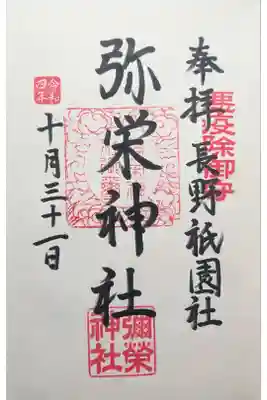 奉拝長野祇園社
悪疫除御守
弥栄神社
彌榮神社
令和四年
十月三十一日